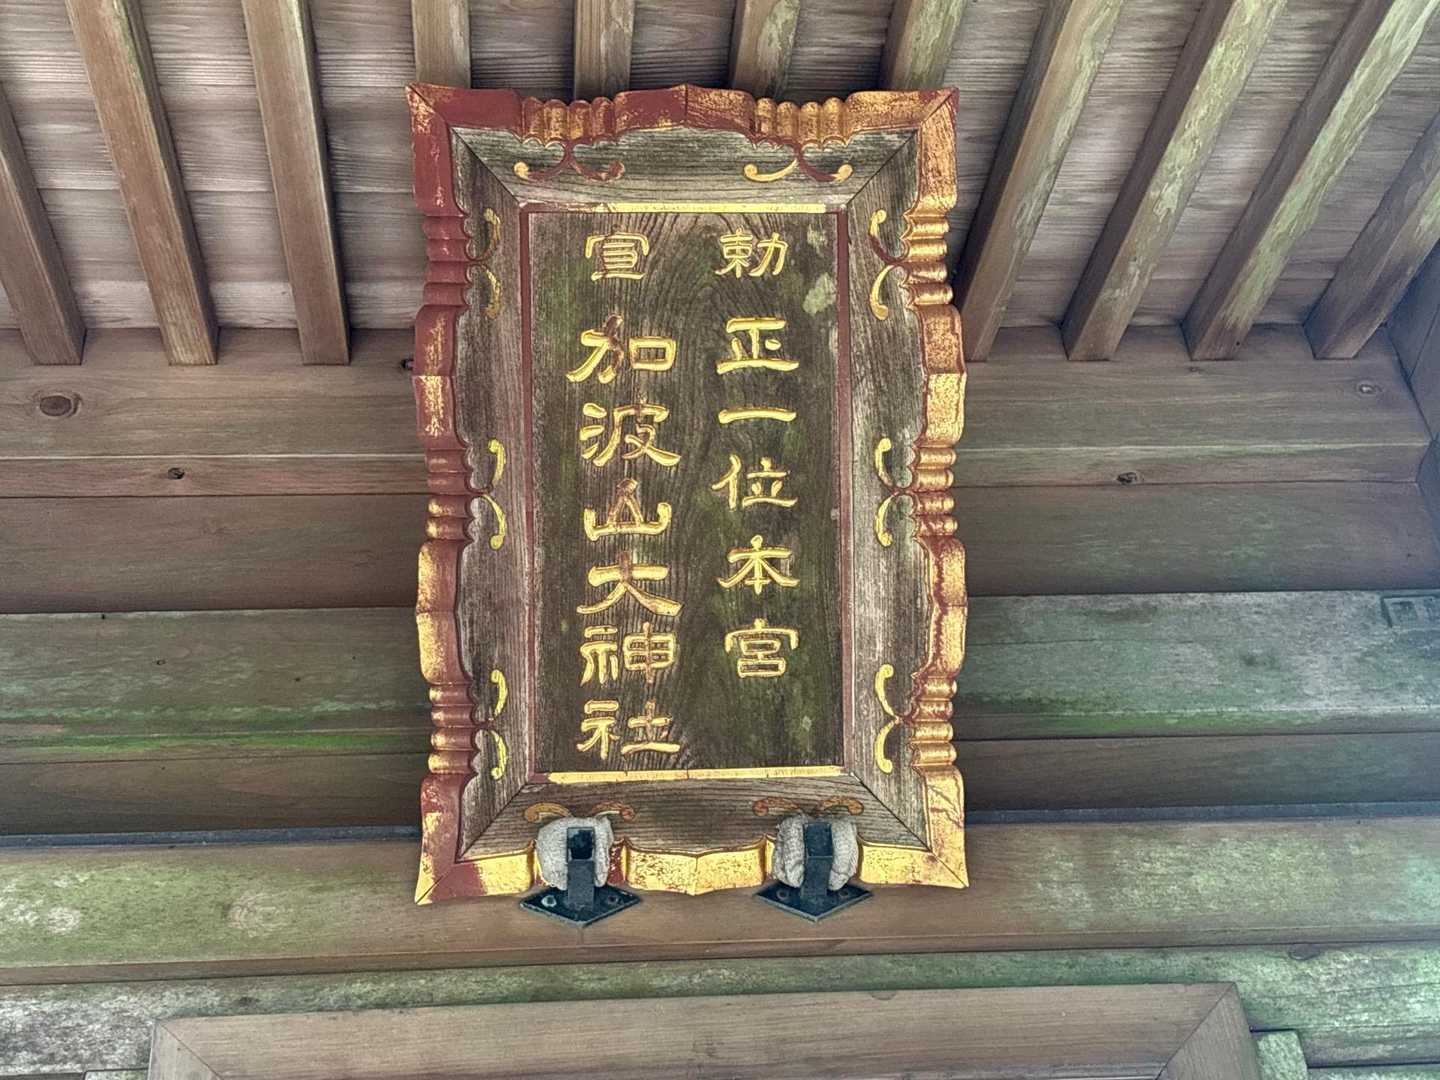 勅宣
正一位本宮
加波山大神社